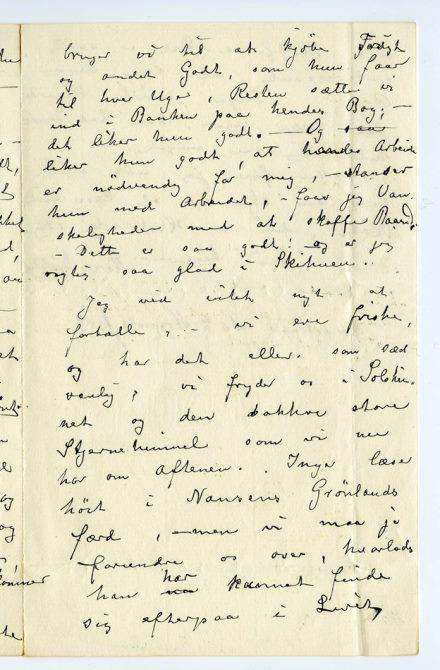 bruger vi til at kjøbe Frugt
og andet Godt, som hun faar
til hver Uge, Resten sætter vi
ind i Banken paa hendes Bog; —
det liker hun godt. — Og saa
liker hun godt, at hendes Arbeide
er nødvendig for mig, — stanser
hun med Arbeidet, — faar jeg Van-
skeligheder med at skaffe Baand,
— Dette er saa godt! og er jeg
rigtig saa glad i Skihuen..
Jeg ved intet nyt at
fortælle, — vi ere friske,
og har det ellers som sæd-
vanlig, vi fryder os i Solskin-
net og den vakkre store
Stjernehimmel som vi nu
har om Aftenen. Inga læser
høit i Nansens Grønlands
færd, — men vi maa jo
forundre os over, hvorlods
han har kunnet finde
sig efterpaa i Livet,